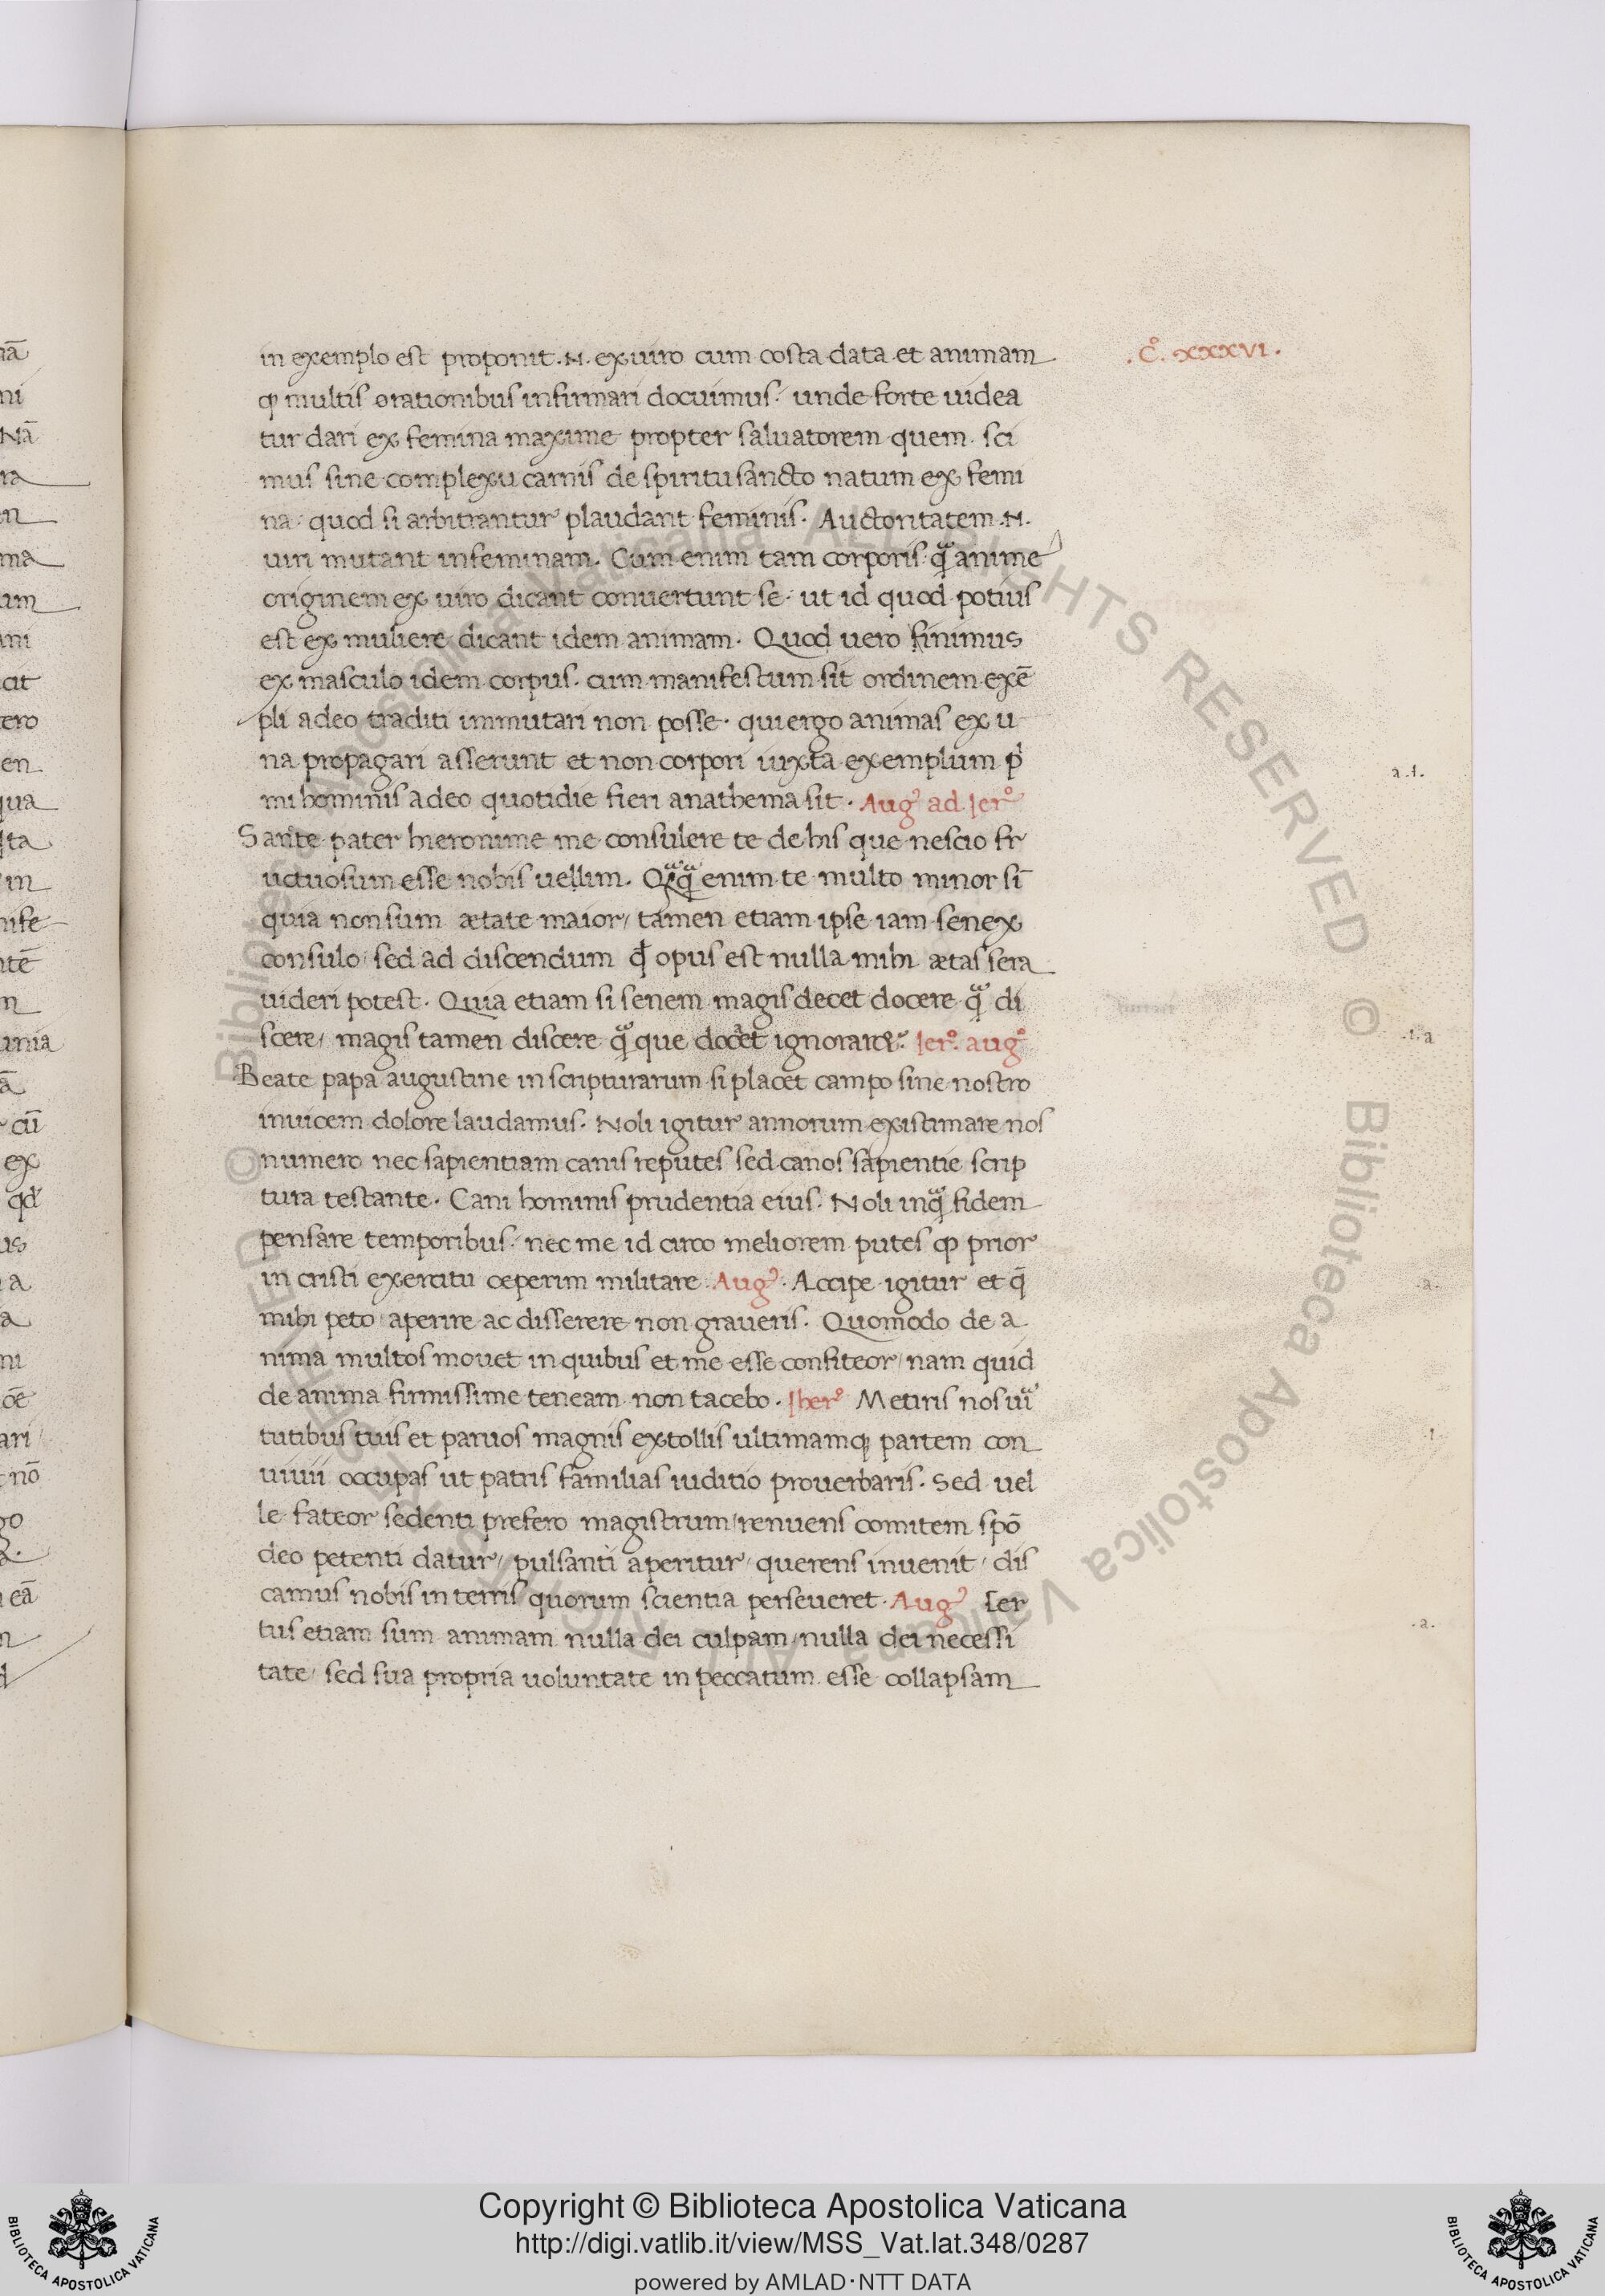 in exemplo est proponit .N. ex uiro cum costa data et animam
ꝙ multis orationibus infirmari docuimus. unde forte uidea
tur dari ex femina maxime propter saluatorem quem sci
mus sine complexu carnis de spiritu sancto natum ex femi
na quod si arbitrantur plaudant feminis. Auctoritatem .N.
uiri mutant in feminam. Cum enim tam corporis qͣ anime
originem ex uiro dicant conuertunt se. ut id quod potius
est ex muliere dicant idem animam. Quod uero finimus
ex masculo idem corpus. cum manifestum sit ordinem exē
pli a deo traditi immutari non posse. qui ergo animas ex u
na propagari asserunt et non corpori iuxta exemplum pͥ
mi hominis a deo quotidie fieri anathema sit. Augꝰ ad Jerº
Sante pater hieronime me consulere te de his que nescio fr
uctuosum esse nobis uellim. Qͣqͣ enim te multo minor sī
quia non sum ætate maior/ tamen etiam ipse iam senex
consulo/ sed ad discendum qđ opus est nulla mihi ætas sera
uideri potest. Quia etiam si senem magis decet docere qͣ di
scere/ magis tamen discere qͣ que docet ignorare. Jerº. augº
Beate papa augustine in scripturarum si placet campo sine nostro
inuicem dolore laudamus. Noli igitur annorum existimare nos
numero nec sapientiam canis reputes sed canos sapientie scrip
tura testante. Cani hominis prudentia eius. Noli inqͣ fidem
pensare temporibus. nec me id circo meliorem putes ꝙ prior
in cristi exercitu ceperim militare. Augꝰ. Accipe igitur et q̄
mihi peto aperire ac disserere non graueris. Quomodo de a
nima multos mouet in quibus et me esse confiteor/ nam quid
de anima firmissime teneam non tacebo. Jherº Metiris nos uiͣ
tutibus tuis et paruos magnis extollis ultimamqꝫ partem con
uiuii occupas ut patris familias iuditio prouerbaris. Sed uel
le fateor sedenti prefero magistrum/ renuens comitem spō
deo petenti datur/ pulsanti aperitur/ querens inuenit/ dis
camus nobis in terris quorum scientia perseueret. Augꝰ [er
tus etiam sum animam nulla dei culpam/ nulla dei necessi
tate/ sed sua propria uoluntate in peccatum esse collapsam
.Cº. XXXVI.
a.1.
.1.a
.a.
.1.
.a.
© Biblioteca Apostolica Vaticana ALL RIGHTS RESERVED © Biblioteca Apostolica Vaticana ALL RIGHTS RESERVED
Copyright © Biblioteca Apostolica Vaticana
http://digi.vatlib.it/view/MSS_Vat.lat.348/0287
powered by AMLAD·NTT DATA
BIBLIOTECA APOSTOLICA VATICANA
BIBLIOTECA APOSTOLICA VATICANA